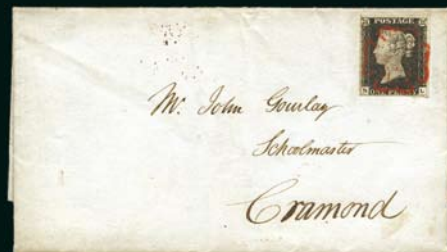 POSTAGE
ONE PENNY
Mr. John Gourlay
Schoolmaster
Cramond